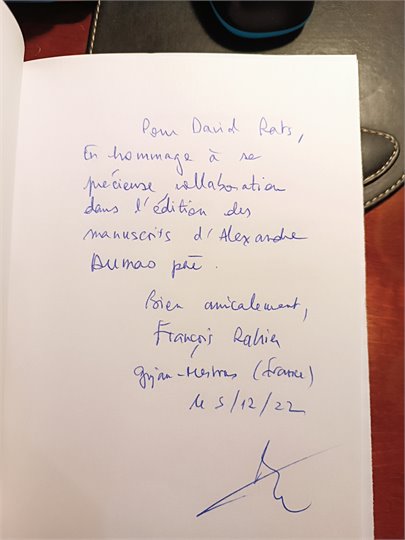 Pour David Rats,
En hommage à se
précieuse collaboration
dans l'édition des
manuscrits d'Alexandre
Dumas père.
Bien amicalement,
François Rahier
Gujan-Mestras (France)
le 5/12/22